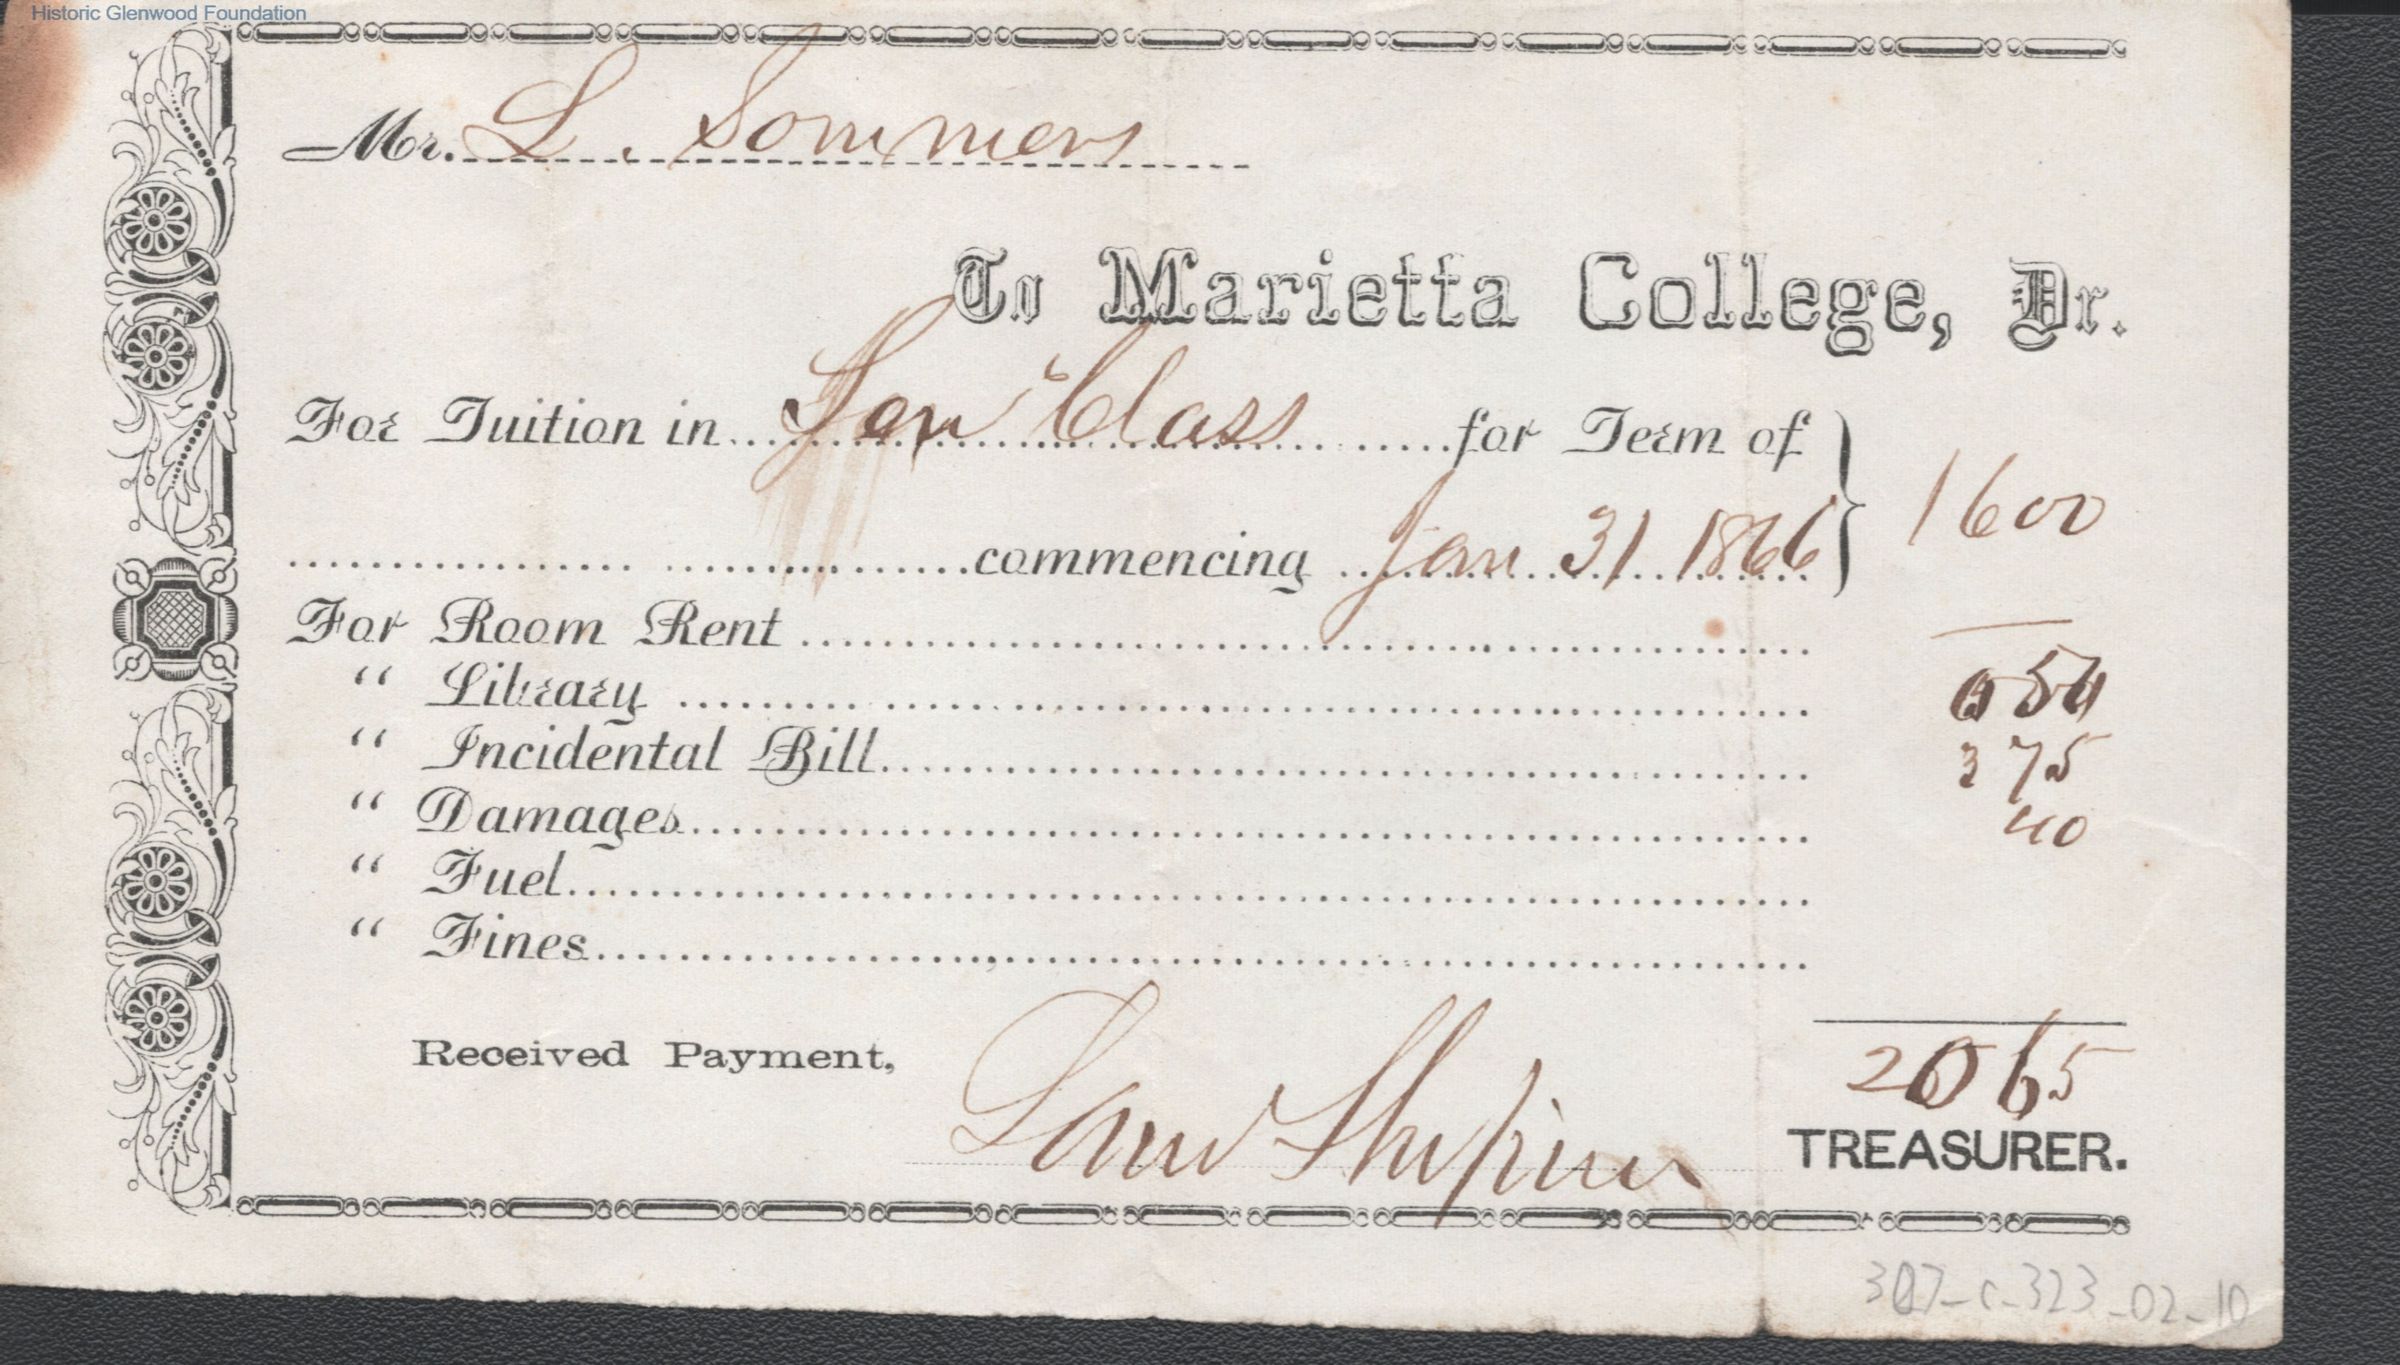 Historic Glenwood Foundation
Mr. L. Sommers
To Marietta College, Dr.
For Tuition in Class for Term of
commencing Jan 31 1866 1600
For Room Rent —
“ Library 0 50
“ Incidental Bill 3 75
“ Damages 40
“ Fuel
“ Fines
2065
Received Payment,
TREASURER.
307-C-323-02-10